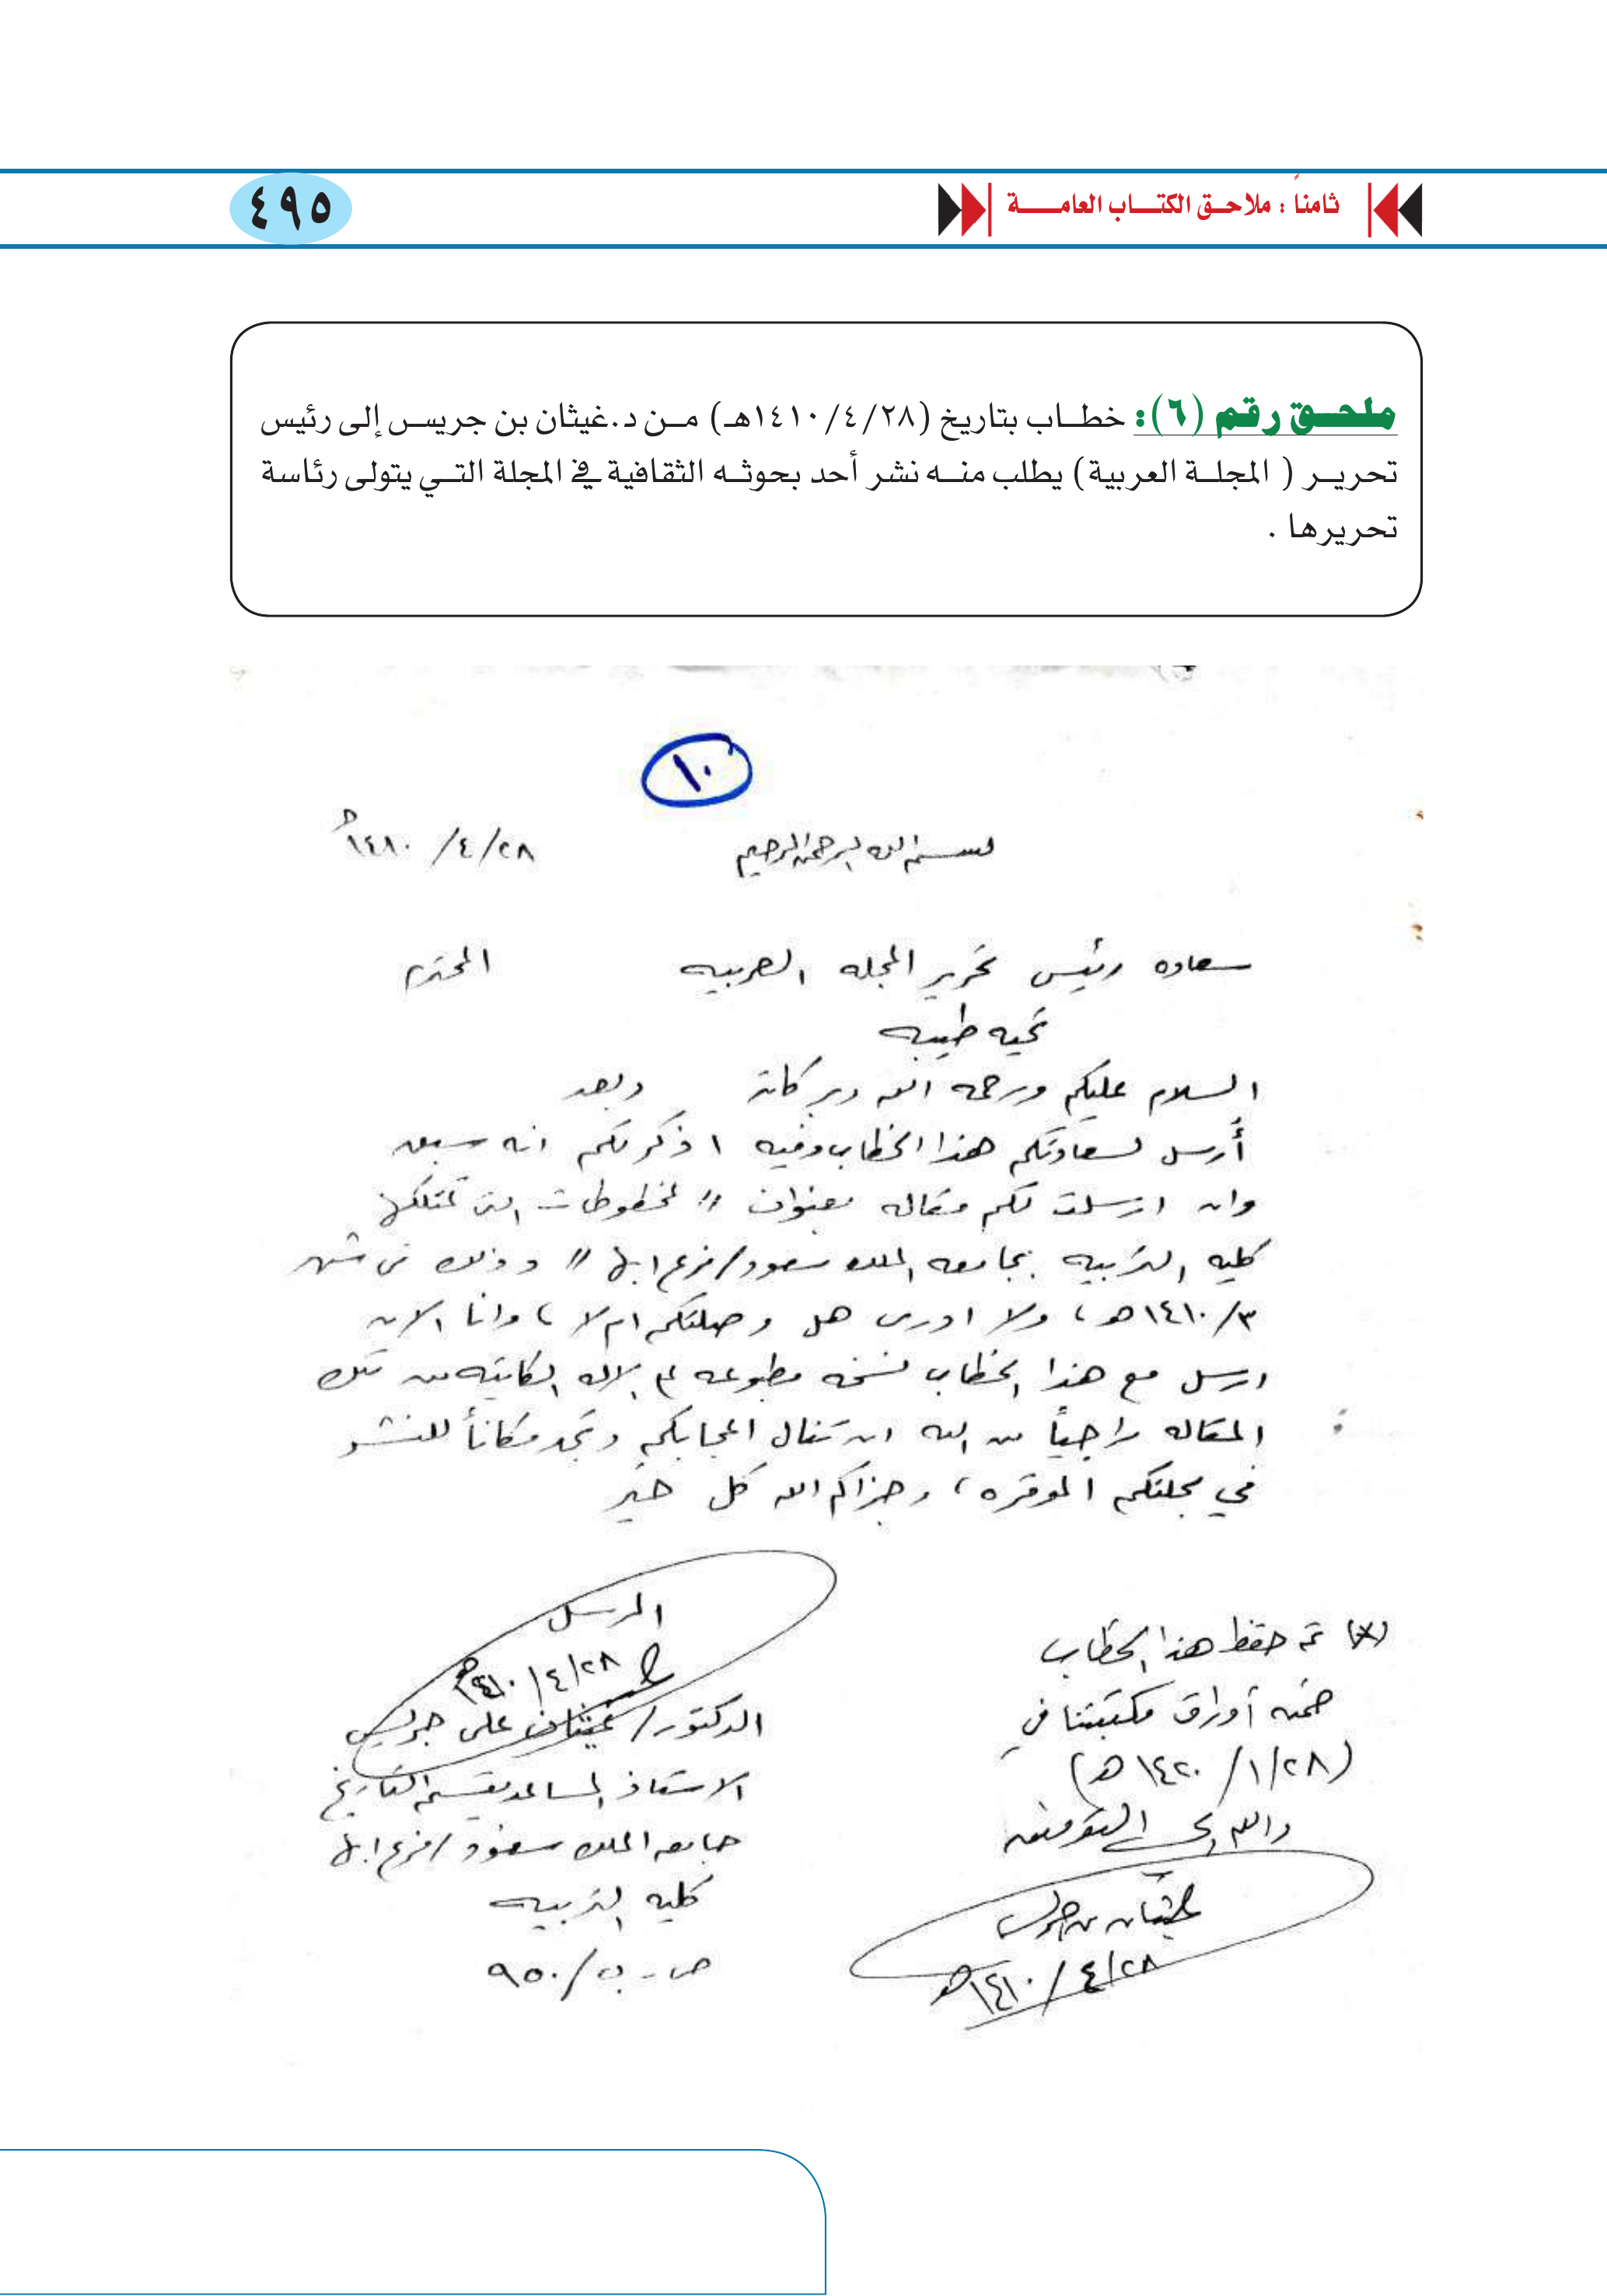 ثامناً : ملاحق الكتاب العامة
٤٩٥
ملحق رقم (٦): خطاب بتاريخ (٢٨/ ٤/ ١٤١٠هـ) من د.غيثان بن جريس إلى رئيس
تحرير ( المجلة العربية) يطلب منه نشر أحد بحوثه الثقافية في المجلة التي يتولى رئاسة
تحريرها .
١٠
بسم الله الرحمن الرحيم
٢٨/ ٤/ ١٤١٠هـ
سعاده رئيس تحرير المجله العربيه المحترم
تحيه طيبه
السلام عليكم ورحمه الله وبركاته وبعد
أرسل لسعادتكم هذا الخطاب وفيه اذكركم انه سبق
وان ارسلت لكم مقاله بعنوان " المخطوطات التي تمتلكها
كليه التربيه بجامعه الملك سعود/ فرع ابها " وذلك في شهر
٣/ ١٤١٠هـ، ولا ادري هل وصلتكم ام لا، وانا الان
ارسل مع هذا الخطاب نسخه مطبوعه على الاله الكاتبه من تلك
المقاله راجياً من الله ان تنال اعجابكم وتجد مكاناً للنشر
في مجلتكم الموقره، وجزاكم الله كل خير
المرسل
٢٨/ ٤/ ١٤١٠هـ
الدكتور/ غيثان علي جريس
الاستاذ المساعد بقسم التاريخ
جامعه الملك سعود/ فرع ابها
كليه التربيه
ص.ب/ ٩٥٠
(*) تم حفظ هذا الخطاب
ضمن أوراق مكتبتنا في
(٢٨/ ١/ ١٤٢٠هـ)
والله ولي التوفيق
غيثان بن جريس
٢٨/ ٤/ ١٤١٠هـ